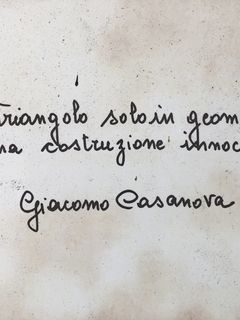 triangolo solo in geom
na costruzione innoc
Giacomo Casanova